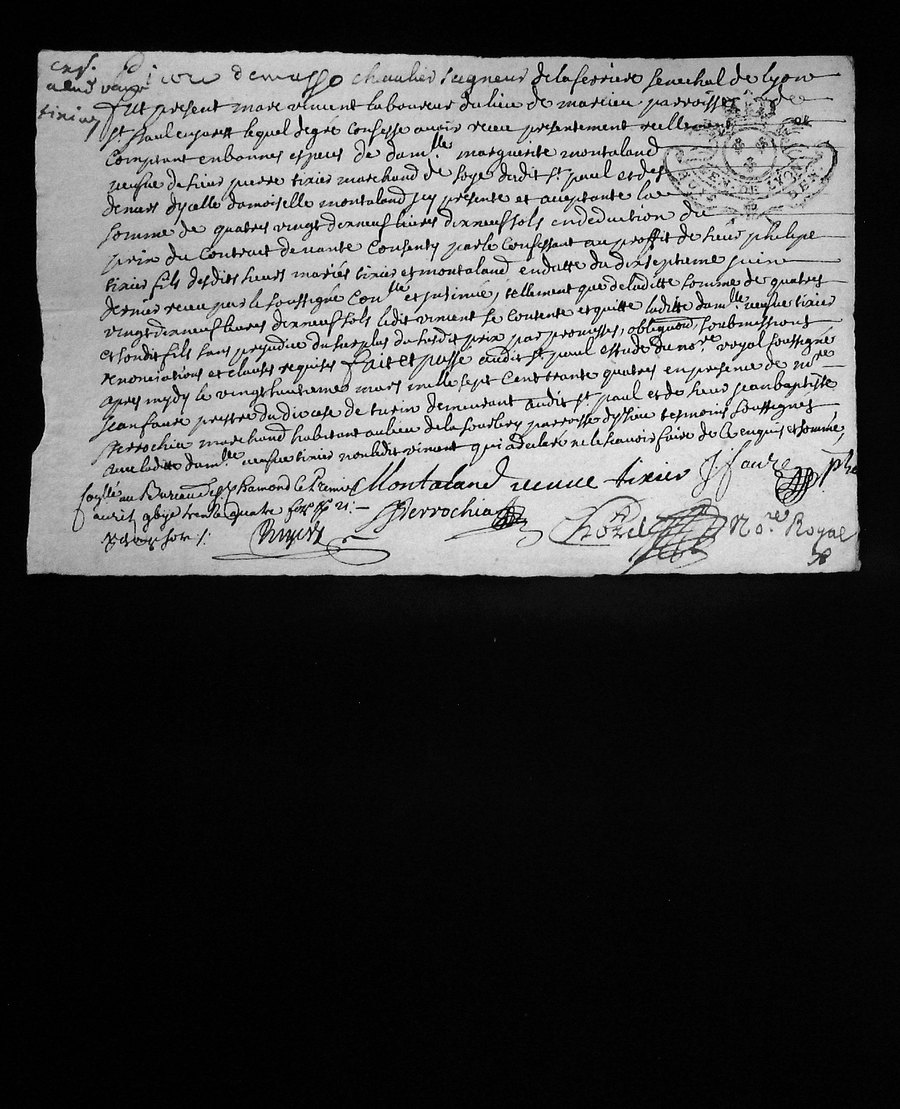 pierre demasso chevalier seigneur de la ferriere senechal de lyon
fut present marc viment laboureur du lieu de parroisse de
st paul en jarest lequel degré confesse avoir receu presentement reellement et
comptant en bonnes especes de dam.lle marguerite montaland
veufve de sieur pierre tixier marchand de soye dudit st. paul et des
deniers dycelle damoiselle montaland icy presente et acceptante la
somme de quatres vingt dixneuf livres dixneuf sols en deduction du
prix du contract de vante consenty par le confessant au proffit de sieur philipe
tixier fils desdits sieurs mariés tixier et montaland en datte du dixseptieme juin
dernier receu par le soussigné con.lle et insinué, tellement que de laditte somme de quatres
vingt dixneuf livres dixneuf sols ledit viment se contente et quitte laditte dam.lle veufve tixier
et sondit fils sans prejudice du surplus du susdit prix par promesses, obligaons soubmissions
renonciations et clauses requises fait et passé audit st paul estude du no.re royal soussigné
apres mydy le vingt huitiemes mars mille sept cent trante quatres en presence de m.re
jean faure prestre du diocese de turin demeurant audit st paul et de sieur jean baptiste
ferrochia marchand habitant au lieu de la parroisse dysieu temoins soussignés
avec laditte dam.lle veufve tixier non ledit viment qui a declaré ne le scavoir faire de ce enquis et sommé,
Montaland veuve tixier J faure ptre
au Bureau de st Chamond le premier
avril trente quatre
Ferrochia
No.re Royal